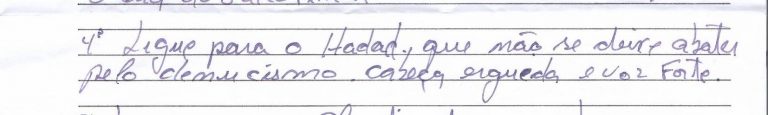 4º Ligue para o Hadad, que não se deixe abater
pelo denucismo. cabeça erguida e voz Forte.